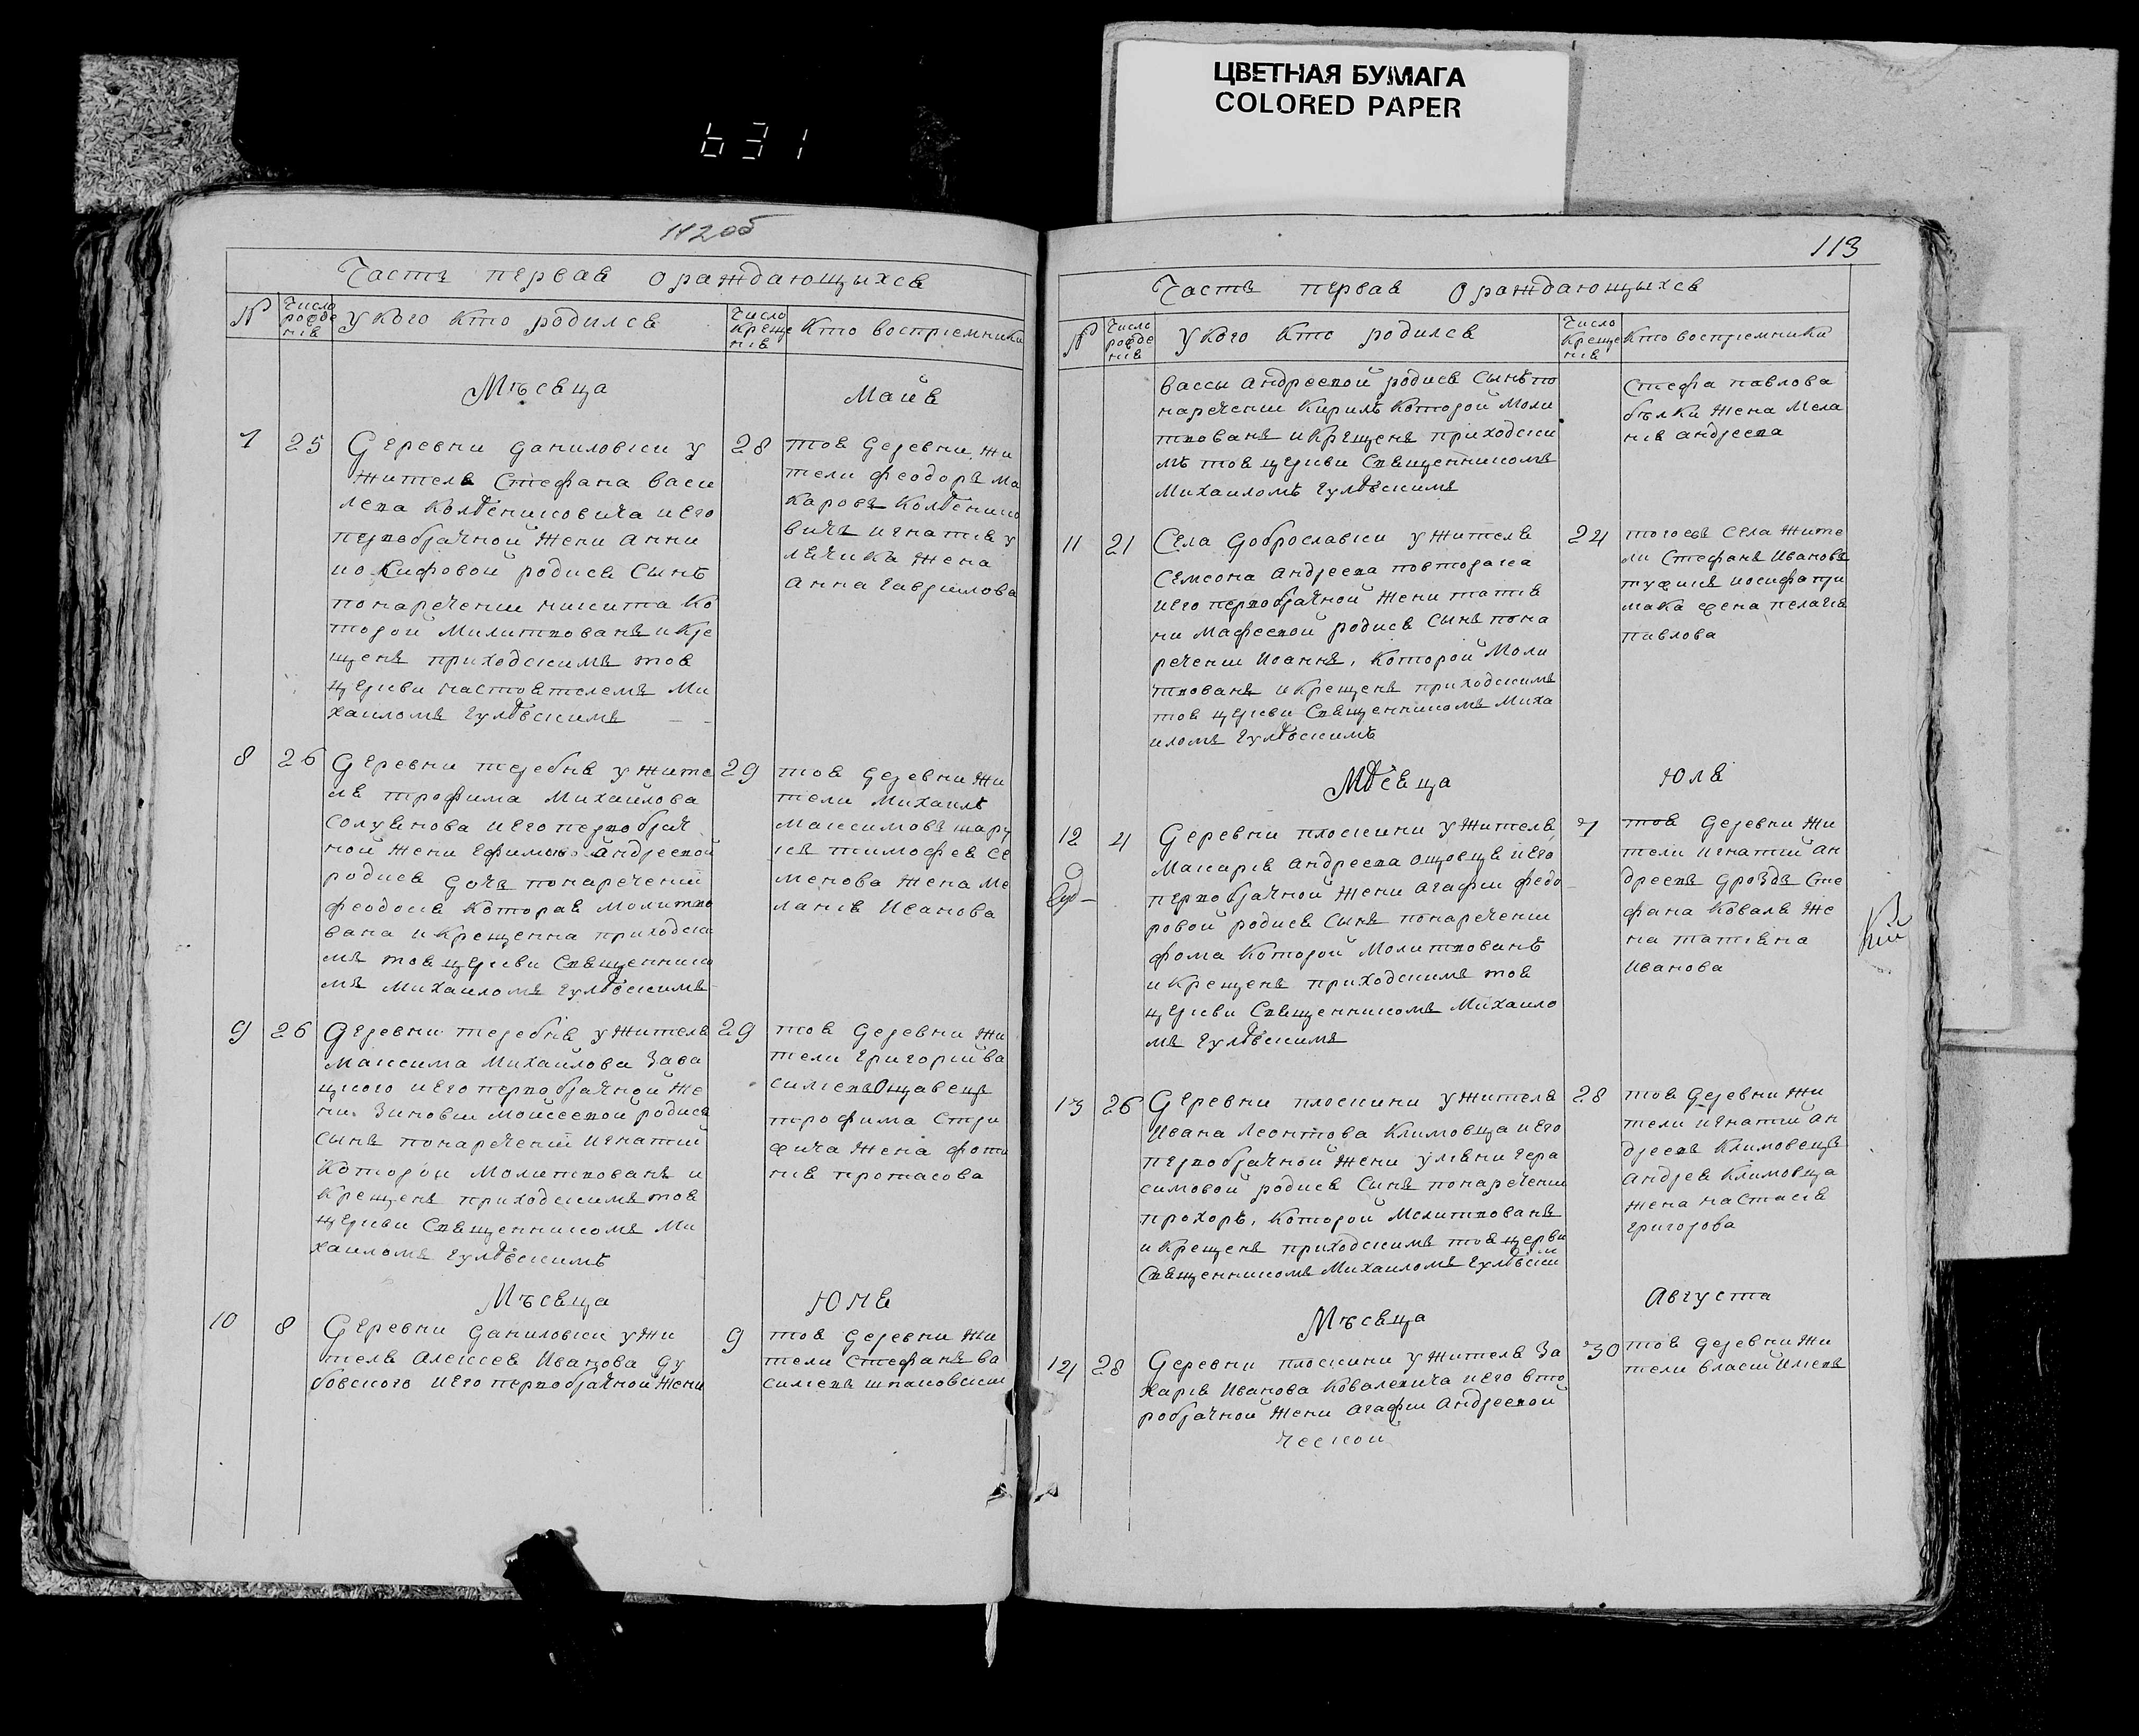 ЦВЕТНАЯ БУМАГА
COLORED PAPER
631
112об
Часть первая ораждающыхся
№
Число рожде нія
У кого кто родился
Число Креще нія
Кто воспріемники
Мѣсяца
Майя
7
25
Деревни Даниловки у
жителя Стефана Васи
лева Колбенисовича и его
первобрачной жени Анни
Иосифовой родися сынъ
понаречении Никита Ко
торой Милитвованъ и Кре
щенъ приходскимъ тоя
церкви настоятелемъ Ми
хаиломъ Гулбскимъ
28
тоя Деревни жи
тели Феодоръ Ма
каровъ Колбенисо
вичъ Игнатія у
лѣчика жена
Анна Гаврилова
8
26
Деревни теребня у жите
ля трофима Михайлова
Солуянова и его первобрач
ной жени Ефиміи Андреевой
родися дочь понаречений
Феодосія Которая Молитво
вана и Крещенна приходски
мъ тоя церкви Священнико
мъ Михаиломъ Гулбскимъ
29
тоя Деревни жи
тели Михаилъ
Максимовъ
тимофея Се
менова жена Ме
ланія Иванова
9
26
Деревни теребня у жителя
Максима Михайлова Зава
цкого и его первобрачной же
ни Зиновіи Моисеевой родися
сынъ понаречений Игнатий
Которой Молитвованъ и
Крещенъ приходскимъ тоя
церкви Священникомъ Ми
хаиломъ Гулбскимъ
29
тоя Деревни жи
тели Григорій Ва
силіевъ Ощавецъ
трофима Стри
жича жена фоти
нія протасова
Мѣсяца
Юня
10
8
Деревни Даниловки у жи
теля Алексея Иванова Ду
бовского и его первобрачной жени
9
тоя Деревни жи
тели Стефанъ Ва
силіевъ шпаковскии
113
Часть первая ораждающыхся
№
Число рожде нія
У кого кто родился
Число Креще нія
Кто воспріемники
Вассы Андреевой родися Сынъ по
наречении Кирилъ Которой Моли
твованъ и Крещенъ приходски
мъ тоя церкви Священникомъ
Михаиломъ Гулбскимъ
Стефа павлова
бѣлки жена Мела
нія Андреева
11
21
Села Доброславки у жителя
Семсона Андреева повторака
и его первобрачной жени татія
ни Мафеевой родися Сынъ пона
речении Иоаннъ, Которой Моли
твованъ и Крещенъ приходскимъ
тоя церкви Священникомъ Миха
иломъ Гулбскимъ
24
тогожъ Села жите
ли Стефанъ Ивановъ
Иосифа при
мака жена пелагія
павлова
Мѣсяца
Юля
12
4
Деревни плоскини у жителя
Макарія Андреева Ощовця и его
первобрачной жени Агафіи Федо
ровой родися Сынъ понаречении
фома Которой Молитвованъ
и Крещенъ приходскимъ тоя
церкви Священникомъ Михаило
мъ Гулбскимъ
7
тоя Деревни жи
тели Игнатий Ан
дреевъ Дроздъ Сте
фана Коваля же
на татіяна
Иванова
13
26
Деревни плоскини у жителя
Ивана Леонтова Климовца и его
первобрачной жени Улияни Гера
симовой родися Сынъ понаречении
прохоръ, Которой Молитвованъ
и Крещенъ приходскимъ тоя церкви
Священникомъ Михаиломъ Гулбским
28
тоя Деревни жи
тели Игнатий Ан
дреевъ Климовецъ
Андрея Климовца
жена Настасія
Григорова
Мѣсяца
Августа
14
28
Деревни плоскини у жителя За
харія Иванова Ковалевича и его вто
робрачной жени Агафіи Андреевой
30
тоя Деревни жи
тели Власий
ческой